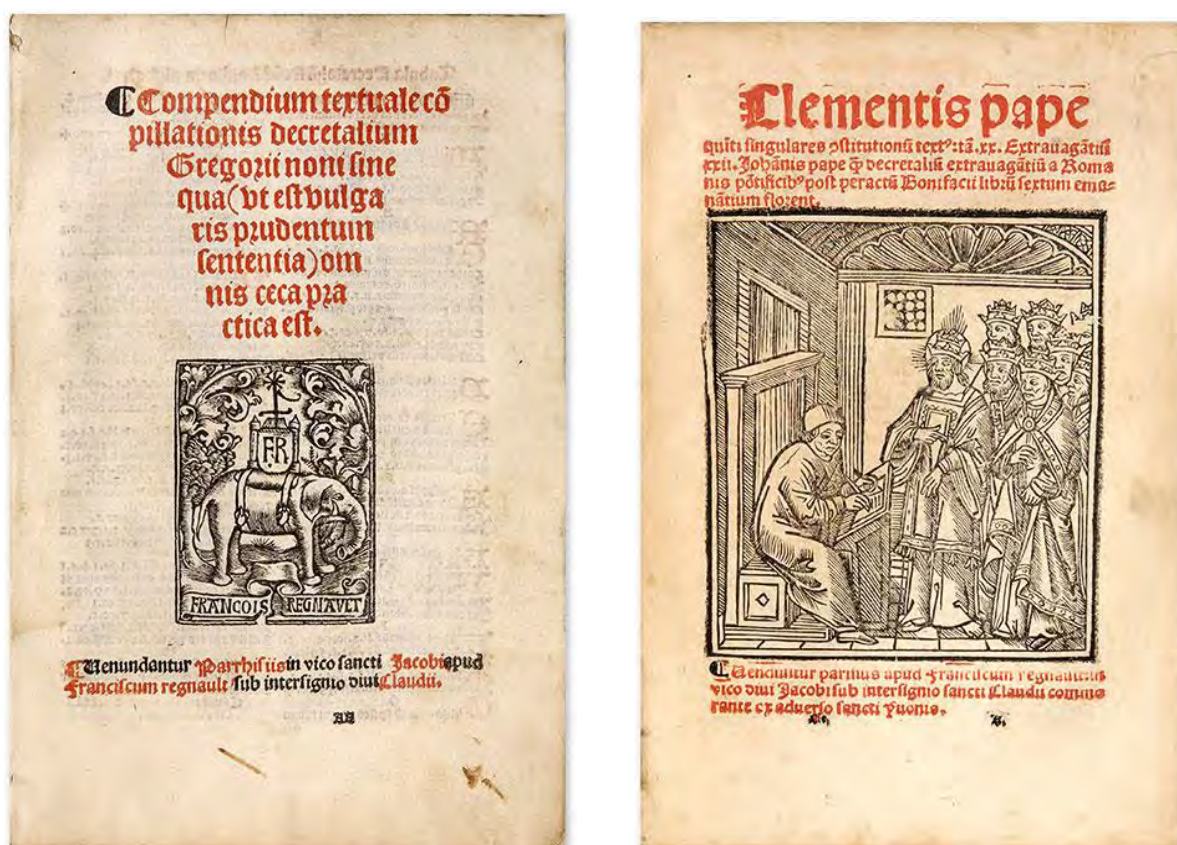 Compendium textuale cō
pillationis decretalium
Gregorii noni sine
qua (vt est vulga
ris prudentum
sententia) om
nis ceca pra
ctica est.
F.R
FRANCOIS REGNAVLT
Uenundantur Parrhisiis in vico sancti Jacobi apud
Franciscum regnault sub intersignio divi Claudii.
Clementis pape
quīti singulares ꝯstitutionū textꝰ: tā .xx. Extravagātiū
xxii. Johānis pape q̄ decretaliū extravagātiū a Roma
nis pōtificibꝰ post peractū Bonifacii librū sextum ema-
nātium florent.
Uenduntur parisius apud Franciscum regnault in
vico divi Jacobi sub intersignio sancti Claudii commo
rante ex adverso sancti Yvonis.